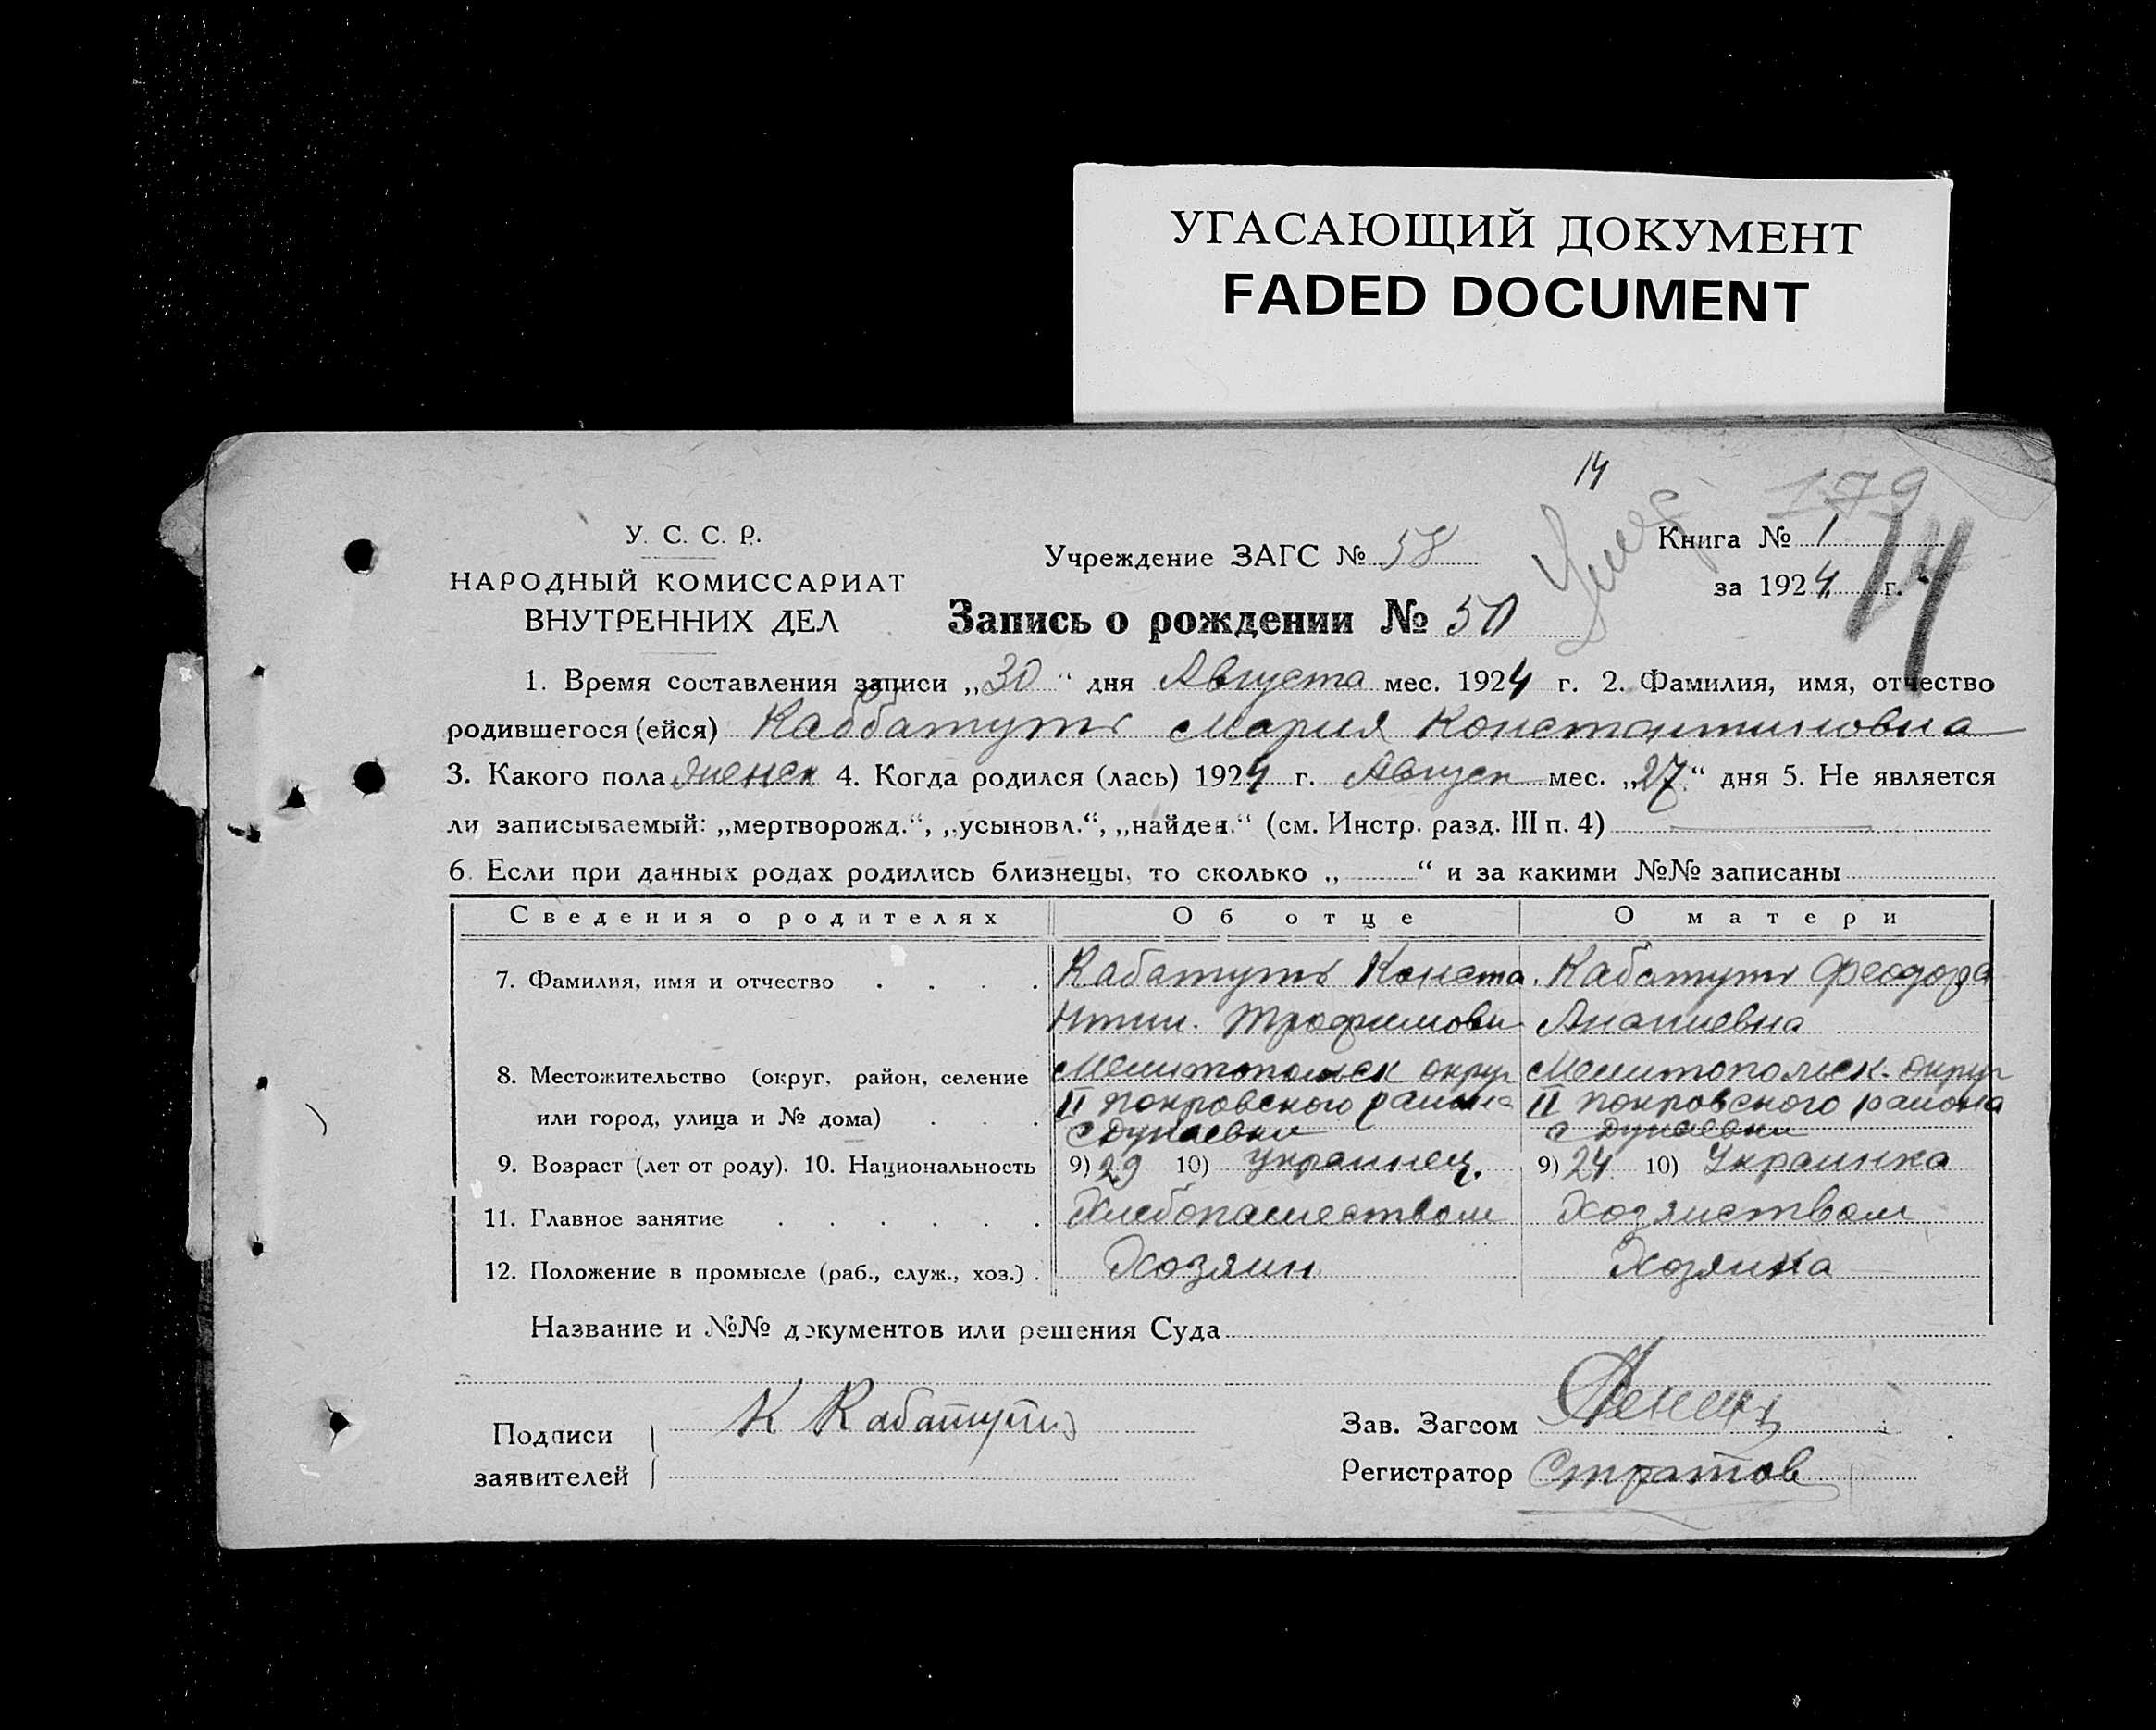 УГАСАЮЩИЙ ДОКУМЕНТ
FADED DOCUMENT
14
179
У. С. С. Р.
НАРОДНЫЙ КОМИССАРИАТ
ВНУТРЕННИХ ДЕЛ
Учреждение ЗАГС № 58
Книга № 1
за 1924 г.
14
Запись о рождении № 50
1. Время составления записи „30“ дня Августа мес. 1924 г. 2. Фамилия, имя, отчество
родившегося (ейся) Кабатуть Мария Константиновна
3. Какого пола женск 4. Когда родился (лась) 1924 г. Август мес. „27“ дня 5. Не является
ли записываемый: „мертворожд.“, „усыновл.“, „найден.“ (см. Инстр. разд. III п. 4)
6. Если при данных родах родились близнецы, то сколько „ “ и за какими №№ записаны
Сведения о родителях Об отце О матери
7. Фамилия, имя и отчество . . . . Кабатуть Конста. Кабатуть Феодора
нтин. Трофимови Ананиевна
8. Местожительство (округ, район, селение Мелитопольск округ Мелитопольск. округ
или город, улица и № дома) . . . II Покровского района II Покровского района
с Дунаевки с Дунаевки
9. Возраст (лет от роду). 10. Национальность 9) 29 10) украинец. 9) 24 10) Украинка
11. Главное занятие . . . . . . Хлебопашеством Хозяйством
12. Положение в промысле (раб., служ., хоз.) . Хозяин Хозяйка
Название и №№ документов или решения Суда
Подписи
заявителей
К Кабатуть
Зав. Загсом
Регистратор Стратов